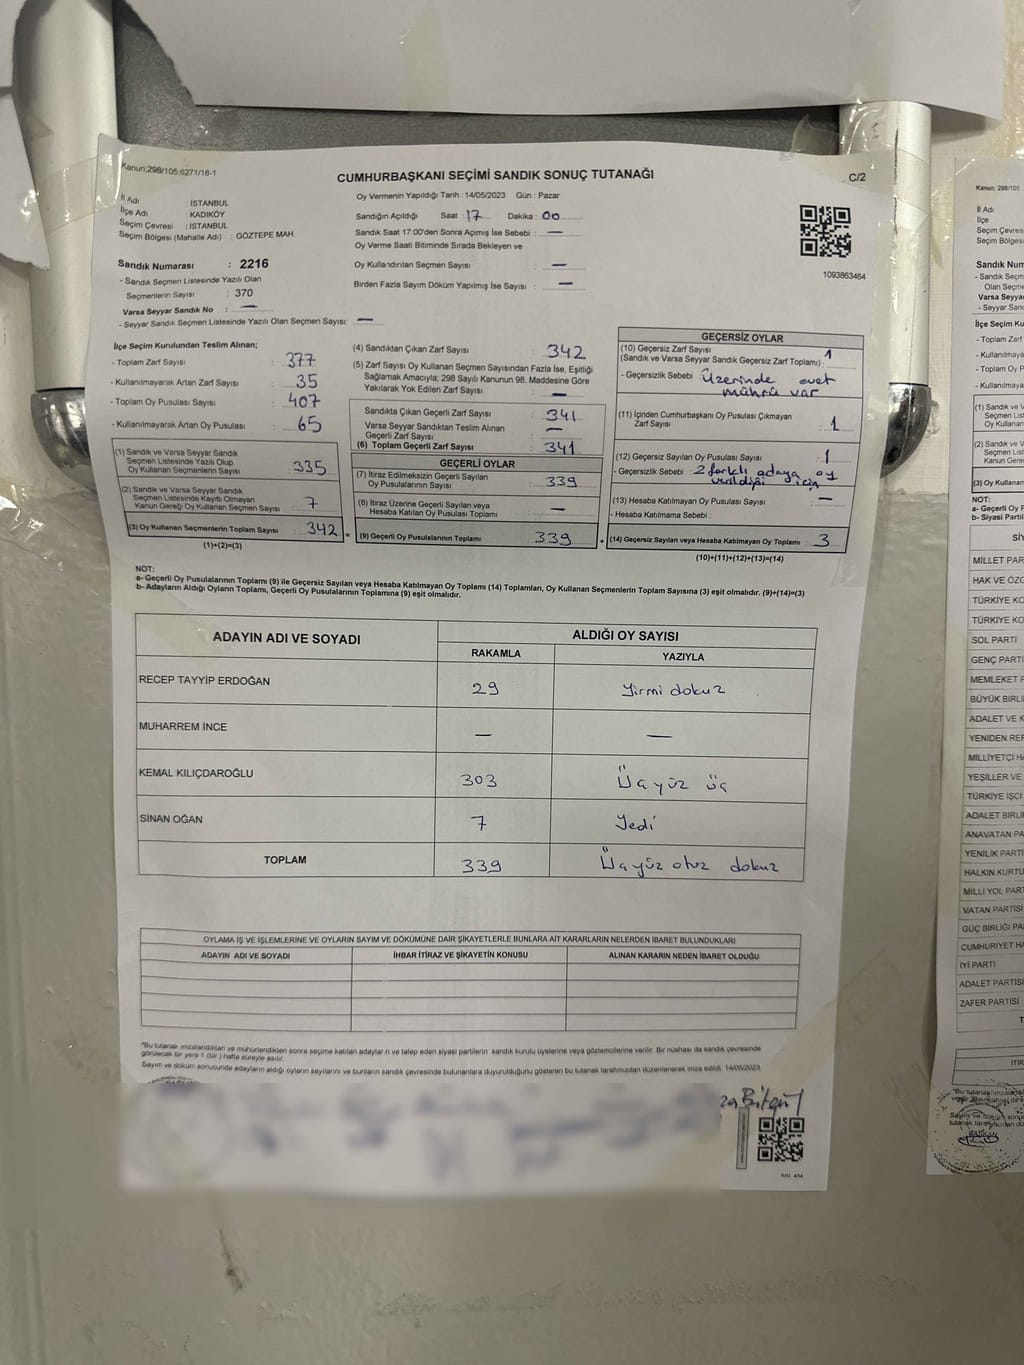 Kanun;298/105;6271/18-1
CUMHURBAŞKANI SEÇİMİ SANDIK SONUÇ TUTANAĞI
C/2
İl Adı : ISTANBUL
İlçe Adı : KADIKÖY
Seçim Çevresi : ISTANBUL
Seçim Bölgesi (Mahalle Adı) : GÖZTEPE MAH.
Oy Vermenin Yapıldığı Tarih : 14/05/2023 Gün : Pazar
Sandığın Açıldığı Saat : 17 Dakika : 00
Sandık Saat 17:00'den Sonra Açımış İse Sebebi : —
Oy Verme Saati Bitiminde Sırada Bekleyen ve
Oy Kullandırılan Seçmen Sayısı : —
Birden Fazla Sayım Döküm Yapılmış İse Sayısı : —
1093863464
Sandık Numarası : 2216
- Sandık Seçmen Listesinde Yazılı Olan
Seçmenlerin Sayısı : 370
Varsa Seyyar Sandık No : —
- Seyyar Sandık Seçmen Listesinde Yazılı Olan Seçmen Sayısı: —
İlçe Seçim Kurulundan Teslim Alınan;
- Toplam Zarf Sayısı : 377
- Kullanılmayarak Artan Zarf Sayısı : 35
- Toplam Oy Pusulası Sayısı : 407
- Kullanılmayarak Artan Oy Pusulası : 65
(1) Sandık ve Varsa Seyyar Sandık
Seçmen Listesinde Yazılı Olup
Oy Kullanan Seçmenlerin Sayısı : 335
(2) Sandık ve Varsa Seyyar
Seçmen Listesinde Kayıtlı Olmayan
Kanun Gereği Oy Kullanan Seçmen Sayısı : 7
(3) Oy Kullanan Seçmenlerin Toplam Sayısı : 342
(1)+(2)=(3)
(4) Sandıktan Çıkan Zarf Sayısı : 342
(5) Zarf Sayısı Oy Kullanan Seçmen Sayısından Fazla İse, Eşitliği
Sağlamak Amacıyla; 298 Sayılı Kanunun 98. Maddesine Göre
Yakılarak Yok Edilen Zarf Sayısı : —
Sandıkta Çıkan Geçerli Zarf Sayısı : 341
Varsa Seyyar Sandıktan Teslim Alınan
Geçerli Zarf Sayısı : —
(6) Toplam Geçerli Zarf Sayısı : 341
GEÇERLİ OYLAR
(7) İtiraz Edilmeksizin Geçerli Sayılan
Oy Pusulalarının Sayısı : 339
(8) İtiraz Üzerine Geçerli Sayılan veya
Hesaba Katılan Oy Pusulası Toplamı : —
= (9) Geçerli Oy Pusulalarının Toplamı : 339
GEÇERSİZ OYLAR
(10) Geçersiz Zarf Sayısı
(Sandık ve Varsa Seyyar Sandık Geçersiz Zarf Toplamı) : 1
- Geçersizlik Sebebi : Üzerinde evet
mührü var
(11) İçinden Cumhurbaşkanı Oy Pusulası Çıkmayan
Zarf Sayısı : 1
(12) Geçersiz Sayılan Oy Pusulası Sayısı : 1
- Geçersizlik Sebebi : 2 farklı adaya oy
verildiği için
(13) Hesaba Katılmayan Oy Pusulası Sayısı : —
- Hesaba Katılmama Sebebi :
+ (14) Geçersiz Sayılan veya Hesaba Katılmayan Oy Toplamı : 3
(10)+(11)+(12)+(13)=(14)
NOT:
a- Geçerli Oy Pusulalarının Toplamı (9) ile Geçersiz Sayılan veya Hesaba Katılmayan Oy Toplamı (14) Toplamları, Oy Kullanan Seçmenlerin Toplam Sayısına (3) eşit olmalıdır. (9)+(14)=(3)
b- Adayların Aldığı Oyların Toplamı, Geçerli Oy Pusulalarının Toplamına (9) eşit olmalıdır.
ADAYIN ADI VE SOYADI ALDIĞI OY SAYISI
RAKAMLA YAZIYLA
RECEP TAYYİP ERDOĞAN 29 Yirmi dokuz
MUHARREM İNCE — —
KEMAL KILIÇDAROĞLU 303 Üçyüz üç
SİNAN OĞAN 7 Yedi
TOPLAM 339 Üçyüz otuz dokuz
OYLAMA İŞ VE İŞLEMLERİNE VE OYLARIN SAYIM VE DÖKÜMÜNE DAİR ŞİKAYETLERLE BUNLARA AİT KARARLARIN NELERDEN İBARET BULUNDUKLARI
ADAYIN ADI VE SOYADI İHBAR İTİRAZ VE ŞİKAYETİN KONUSU ALINAN KARARIN NEDEN İBARET OLDUĞU
"Bu tutanak imzalandıktan ve mühürlendikten sonra seçime katılan adaylar ın ve talep eden siyasi partilerin sandık kurulu üyelerine veya gözlemcilerine verilir. Bir nüshası da sandık çevresinde
görülecek bir yere 1 (bir ) hafta süreyle asılır.
Sayım ve döküm sonucunda adayların aldığı oyların sayılarını ve bunların sandık çevresinde bulunanlara duyurulduğunu gösteren bu tutanak tarafımızdan düzenlenerek imza edildi. 14/05/2023
Kanun; 298/105
İl Adı
İlçe
Seçim Çevres
Seçim Bölges
Sandık Num
- Sandık Seçm
Olan Seçme
Varsa Seyya
- Seyyar Sand
İlçe Seçim Ku
- Toplam Zarf
- Kullanılmaya
- Toplam Oy P
- Kullanılmaya
(1) Sandık ve V
Seçmen List
(2) Sandık ve V
Seçmen List
Kanun Gere
(3) Oy Kullana
NOT:
a- Geçerli Oy P
b- Siyasi Parti
MİLLET PAR
HAK VE ÖZG
TÜRKİYE KO
TÜRKİYE KO
SOL PARTİ
GENÇ PARTİ
MEMLEKET P
BÜYÜK BİRLİ
ADALET VE K
YENİDEN REF
MİLLİYETÇİ HA
YEŞİLLER VE
TÜRKİYE İŞÇİ
ADALET BİRLİ
ANAVATAN PA
YENİLİK PARTİ
HALKIN KURTU
MİLLİ YOL PART
VATAN PARTİSİ
GÜÇ BİRLİĞİ PA
CUMHURİYET HA
İYİ PARTİ
ADALET PARTİSİ
ZAFER PARTİSİ